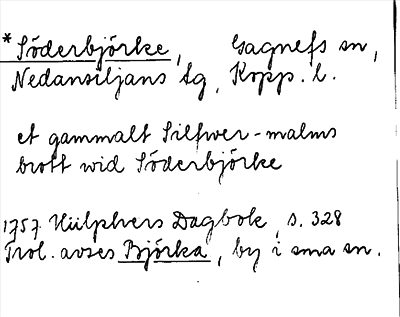 *Söderbjörke, Gagnefs sn,
Nedansiljans tg, Kopp. l.
et gammalt Silfwer-malms
brott wid Söderbjörke
1757 Hülphers Dagbok, s. 328
Trol. avses Björka, by i sma sn.